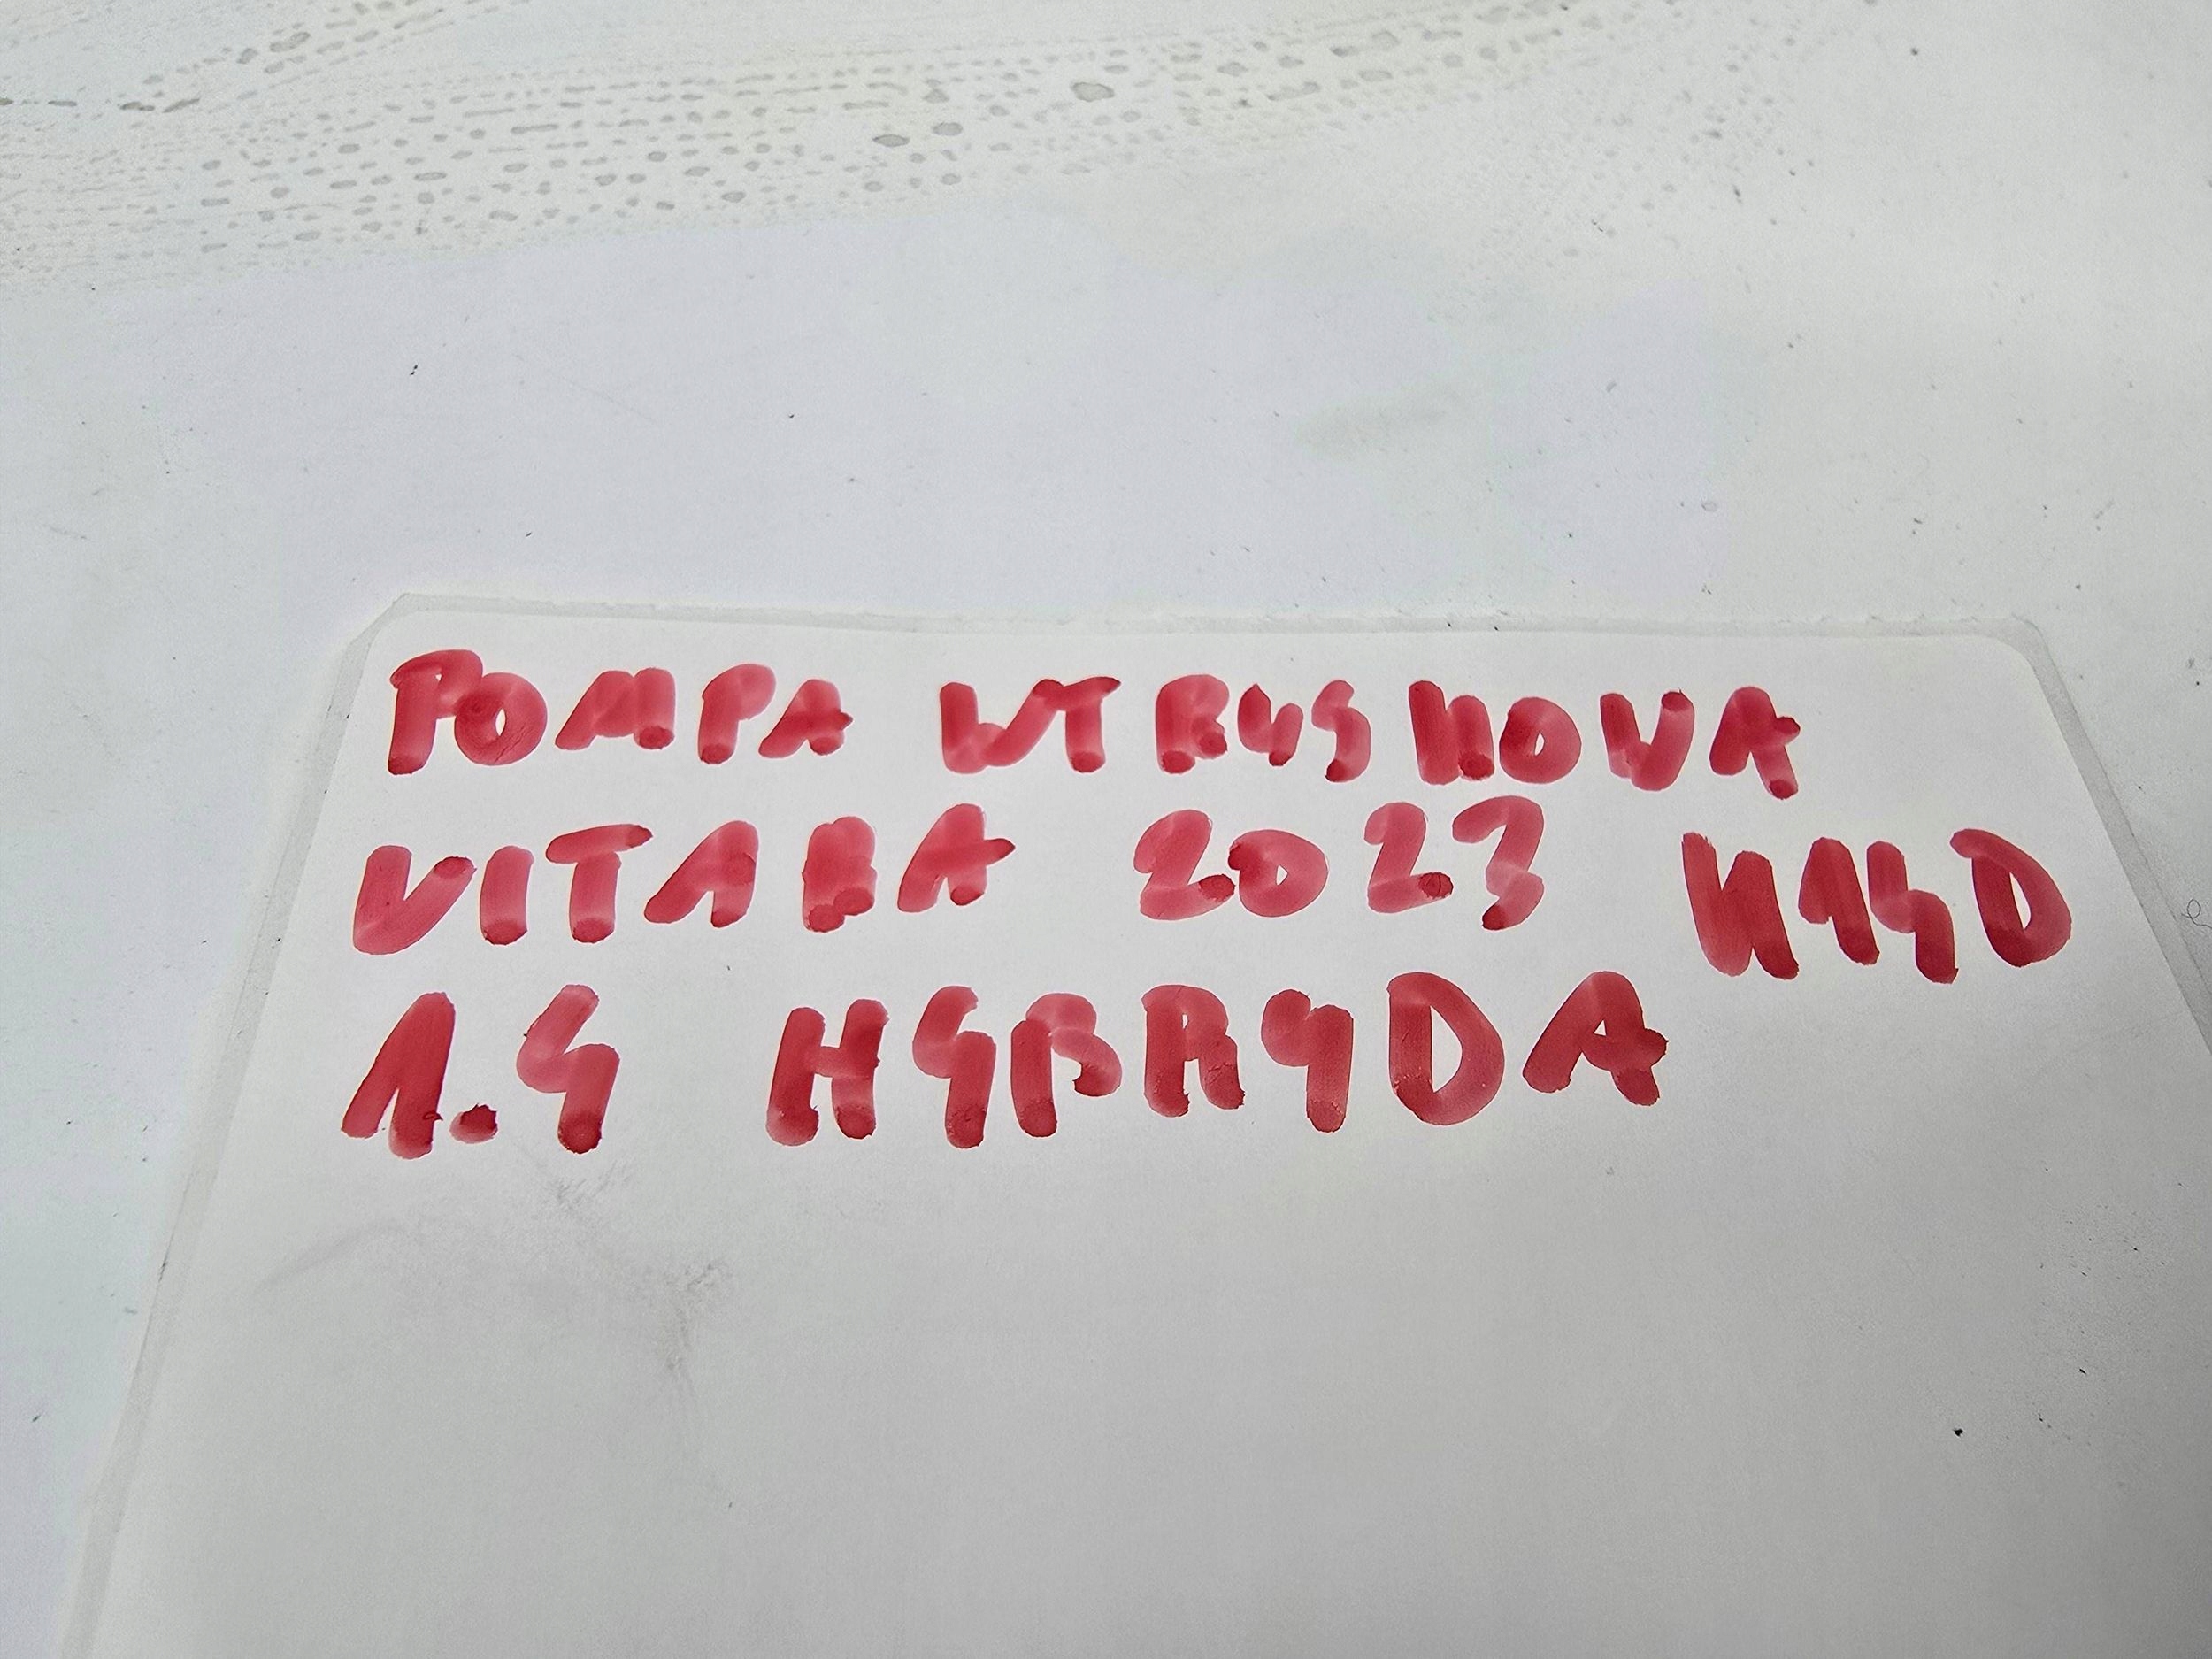 POMPA WTRYSKOWA
VITARA 2023 K14D
1.4 HYBRYDA